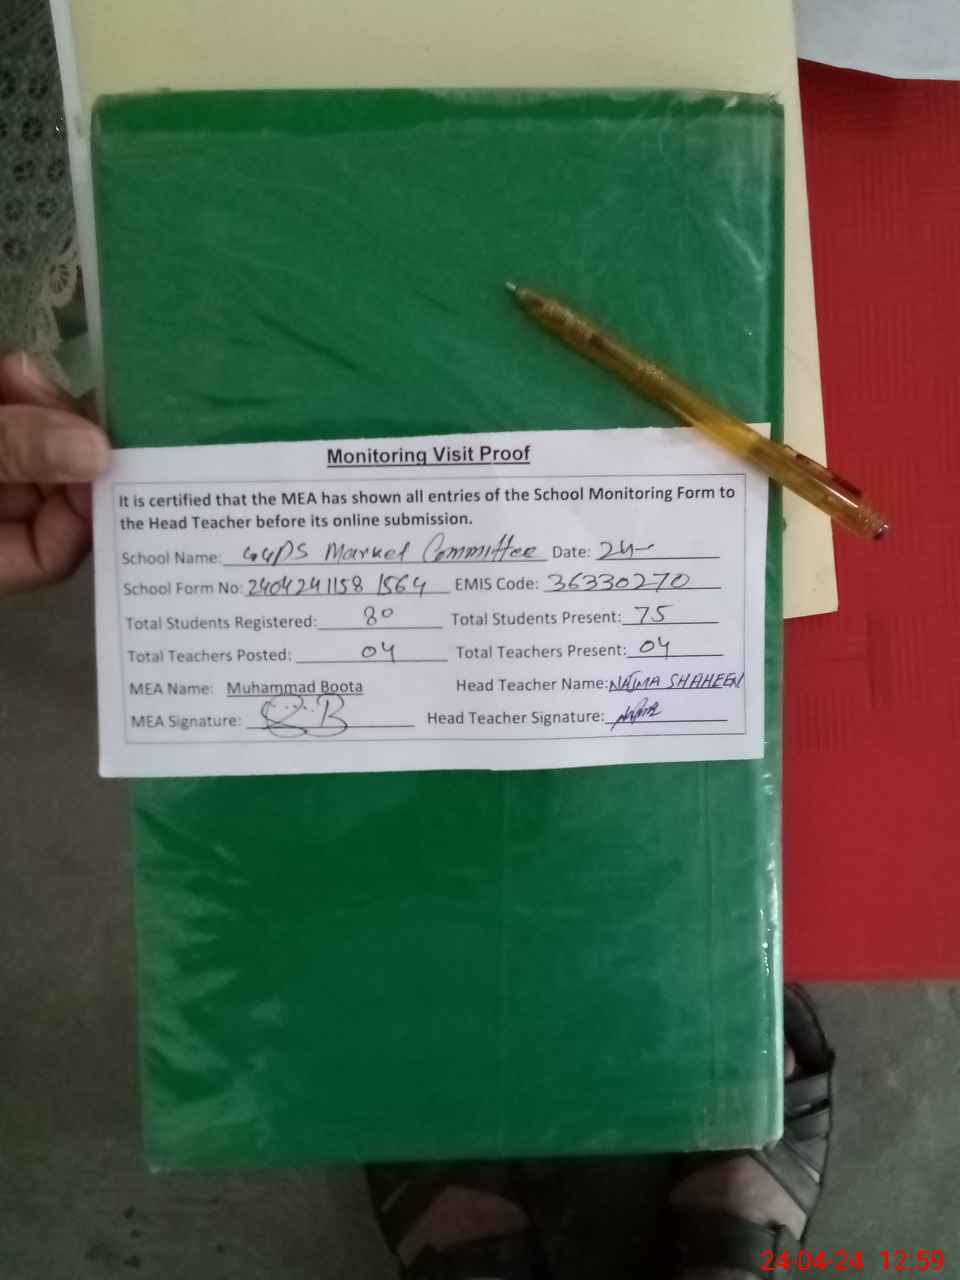 Monitoring Visit Proof
It is certified that the MEA has shown all entries of the School Monitoring Form to
the Head Teacher before its online submission.
School Name: GGPS Market Committee Date: 24-
School Form No: 2404241158 1564 EMIS Code: 36330270
Total Students Registered: 80 Total Students Present: 75
Total Teachers Posted: 04 Total Teachers Present: 04
MEA Name: Muhammad Boota Head Teacher Name: NAJMA SHAHEEN
MEA Signature: Head Teacher Signature:
24-04-24 12:59